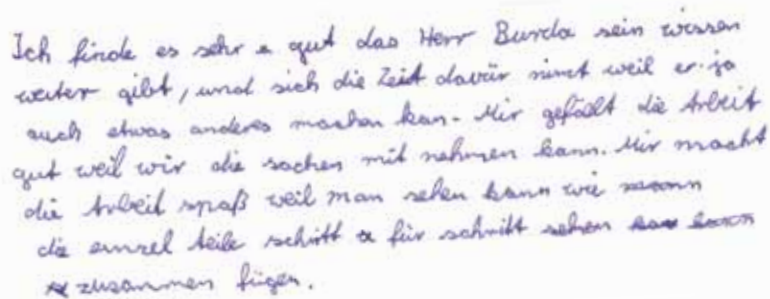 Ich finde es sehr gut das Herr Burda sein wissen
weiter gibt, und sich die Zeit davür nimt weil er ja
auch etwas anderes machen kan. Mir gefällt die Arbeit
gut weil wir die sachen mit nehmen kann. Mir macht
die Arbeit spaß weil man sehen kann wie
die einzel teile schritt für schritt
zusammen fügen.